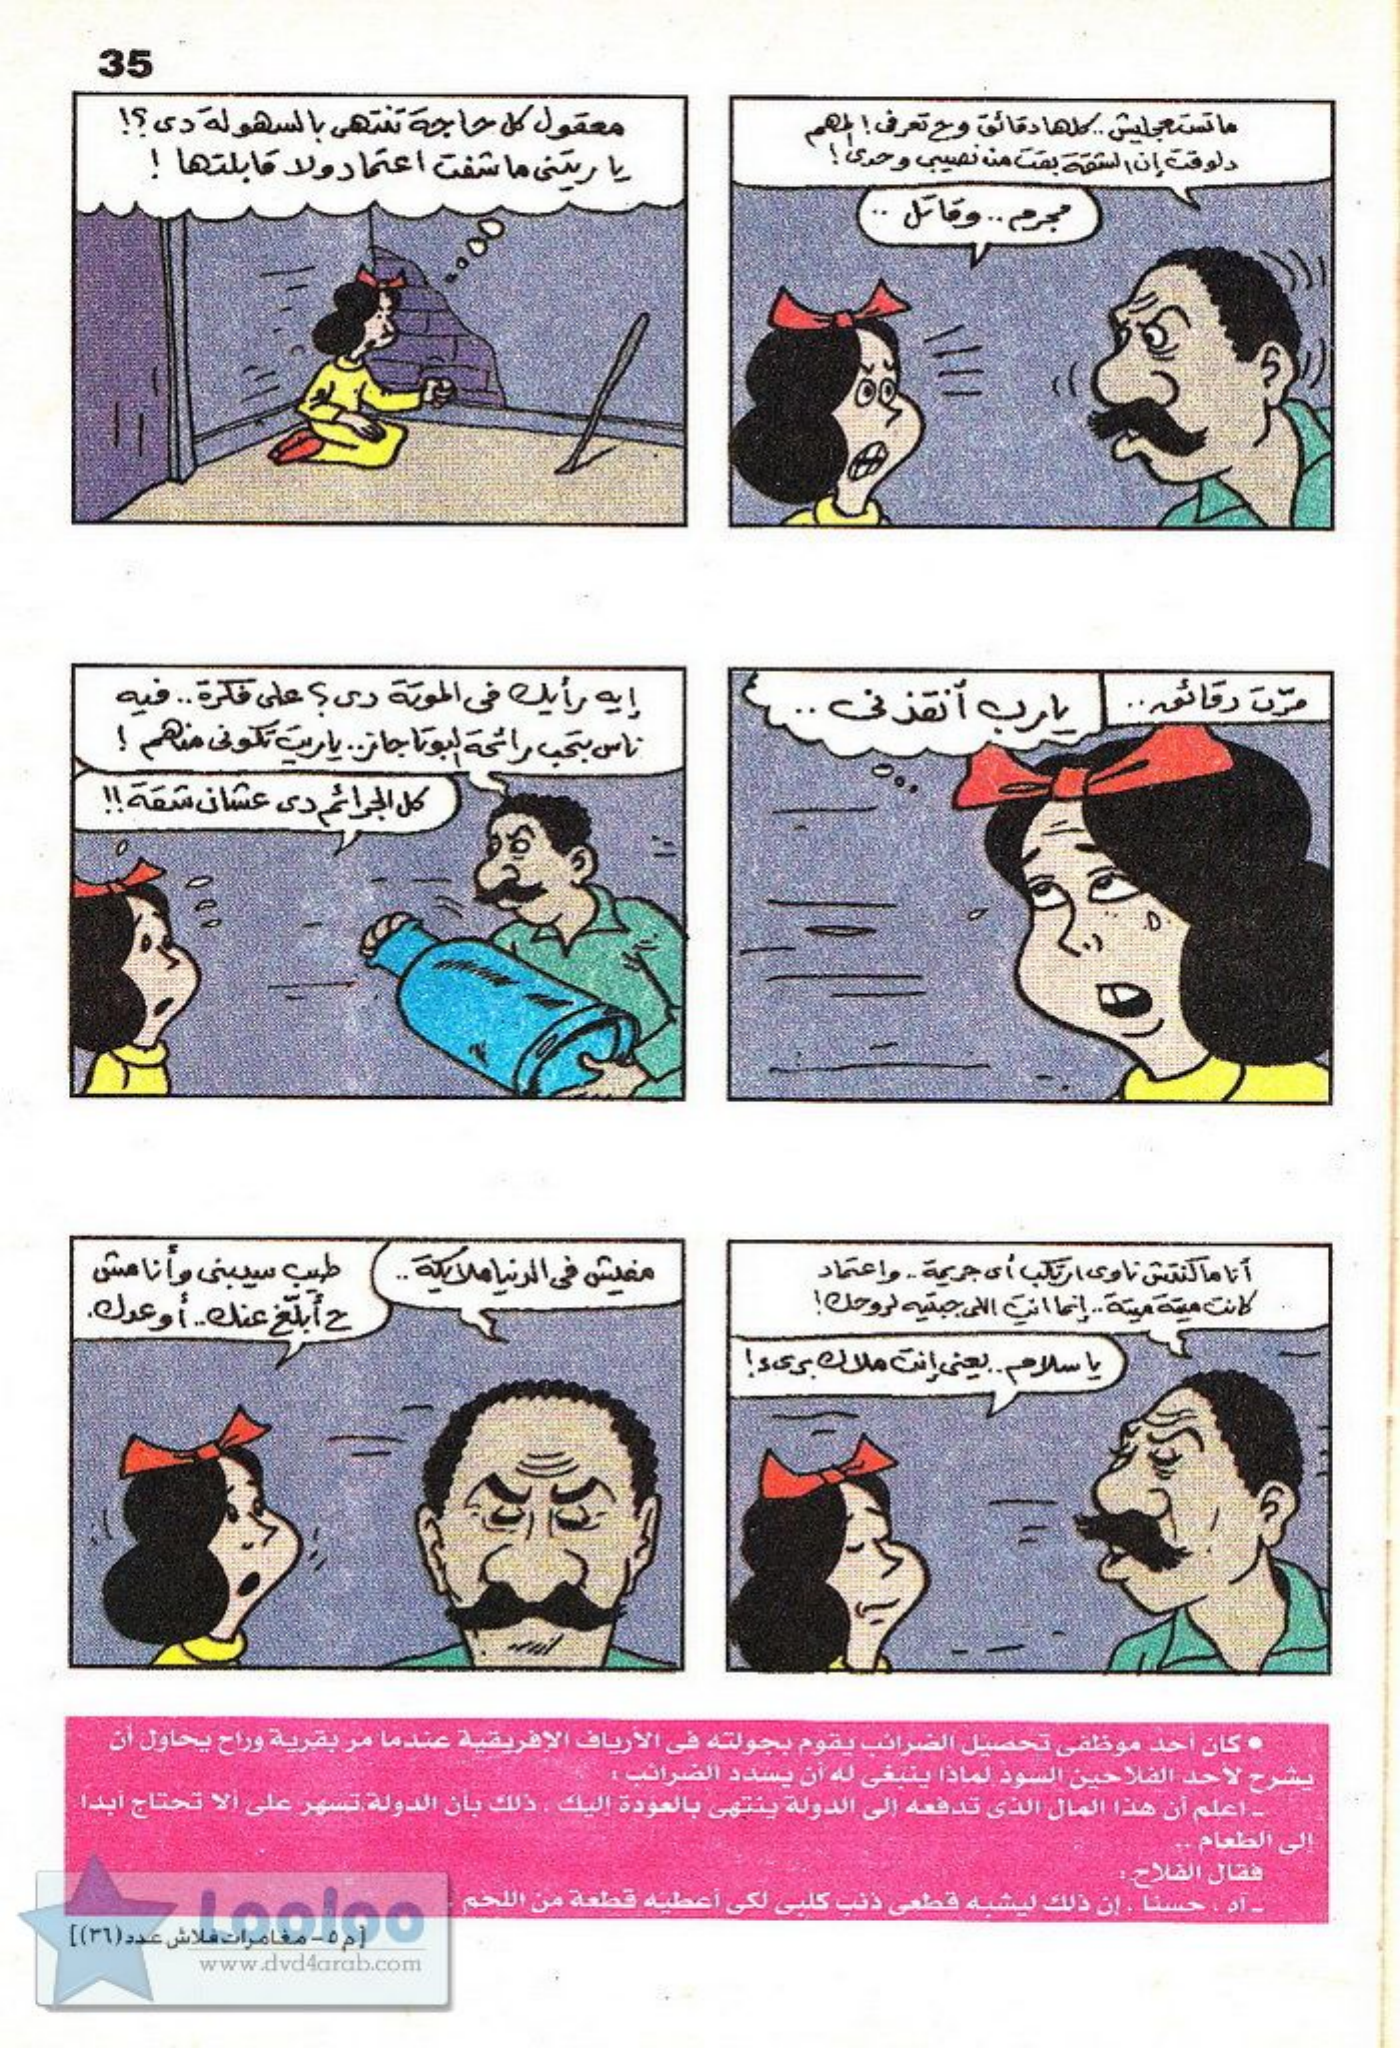 35
ماتستعجليش.. كلها دقائق وح تعرفى! المهم
دلوقت إن الشقة بقت من نصيبى وحدى!
مجرم.. وقاتل ..
معقول كل حاجة تنتهى بالسهولة دى ؟!
يا ريتنى ما شفت اعتماد ولا قابلتها !
مرّت دقائق..
يارب أنقذنى ..
إيه رأيك فى الموتة دى ؟ على فكرة.. فيه
ناس بتحب رائحة البوتاجاز.. ياريت تكونى منهم !
كل الجرائم دى عشان شقة !!
أنا ماكنتش ناوى ارتكب أى جريمة.. واعتماد
كانت ميتة ميتة.. إنما انتِ اللى جبتيه لروحك!
يا سلام.. يعنى إنت ملاك برىء!
مفيش فى الدنيا ملايكة ..
طيب سيبنى وأنا مش
ح أبلّغ عنك.. أوعدك.
● كان أحد موظفى تحصيل الضرائب يقوم بجولته فى الأرياف الإفريقية عندما مر بقرية وراح يحاول أن
يشرح لأحد الفلاحين السود لماذا ينبغى له أن يسدد الضرائب :
ـ اعلم أن هذا المال الذى تدفعه إلى الدولة ينتهى بالعودة إليك ، ذلك بأن الدولة تسهر على ألا تحتاج أبدا
إلى الطعام ..
فقال الفلاح :
ـ آه ، حسنا ، إن ذلك ليشبه قطعى ذنب كلبى لكى أعطيه قطعة من اللحم
Looloo
[(م ٥ – مغامرات فلاش عدد (٣٦)]
www.dvd4arab.com